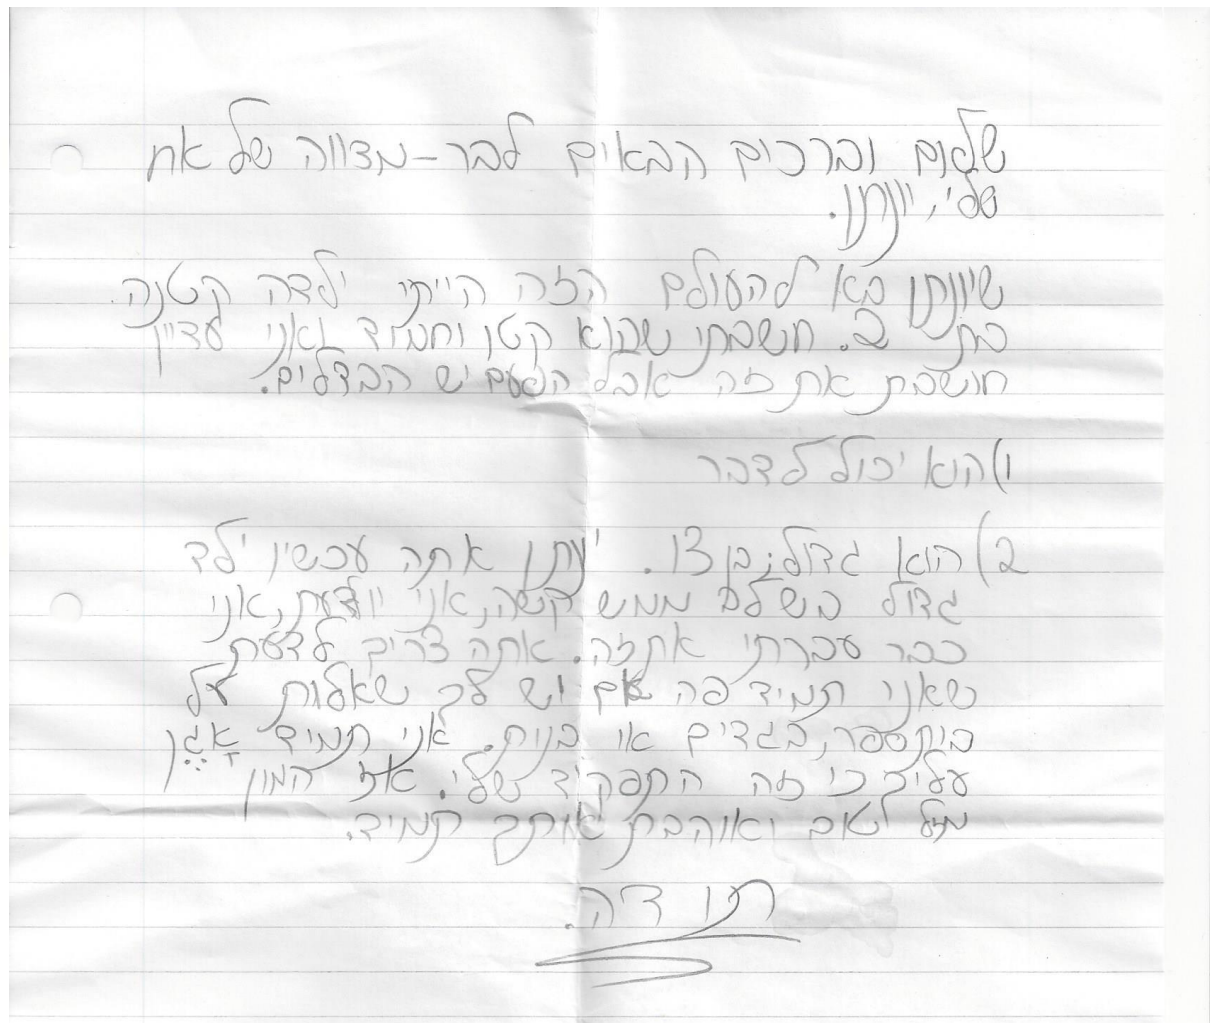 שלום וברכים הבאים לבר-מצווה של אח
שלי, יונתן.
שיונתן בא להעולם הזה הייתי ילדה קטנה.
בת 2. חושבתי שהוא קטן וחמוד ואני עדיין
חושבת את זה אבל הפעם יש הבדלים.
1) הוא יכול לדבר
2) הוא גדול; בן 13. יונתן אתה עכשיו ילד
גדול בשלב ממש קשה, אני יודעת, אני
כבר עברתי את זה. אתה צריך לדעת
שאני תמיד פה אם יש לך שאלות על
ביתספר, בגדים או בנות. אני תמיד אָגֶן
עליך כי זה התפקיד שלי. אז המון
מזל טוב ואוהבת אותך תמיד.
תודה.